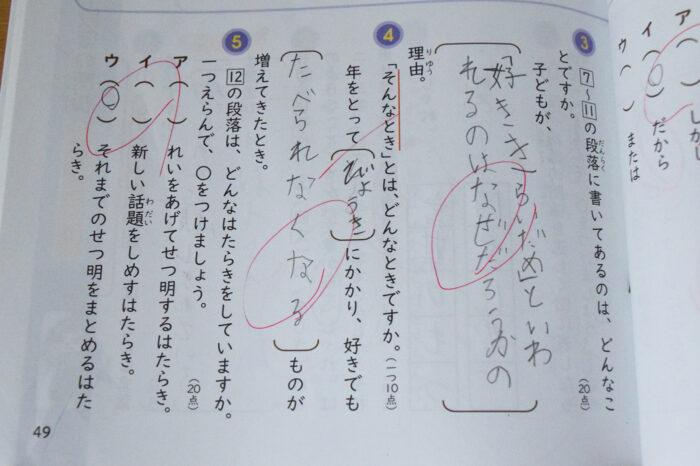 ア（　）しかし
イ（○）だから
ウ（　）または
3
7〜11の段落に書いてあるのは、どんなこ
だんらく
とですか。
（20点）
子どもが、
「好ききらいだめ」といわ
れるのはなぜだろうかの
理由。
りゆう
4
「そんなとき」とは、どんなときですか。
（一つ10点）
年をとって
びょうき
にかかり、好きでも
たべられなくなる
ものが
増えてきたとき。
5
12の段落は、どんなはたらきをしていますか。
一つえらんで、○をつけましょう。
（20点）
ア（　）れいをあげてせつ明するはたらき。
イ（　）新しい話題をしめすはたらき。
わだい
ウ（○）それまでのせつ明をまとめるはた
らき。
49